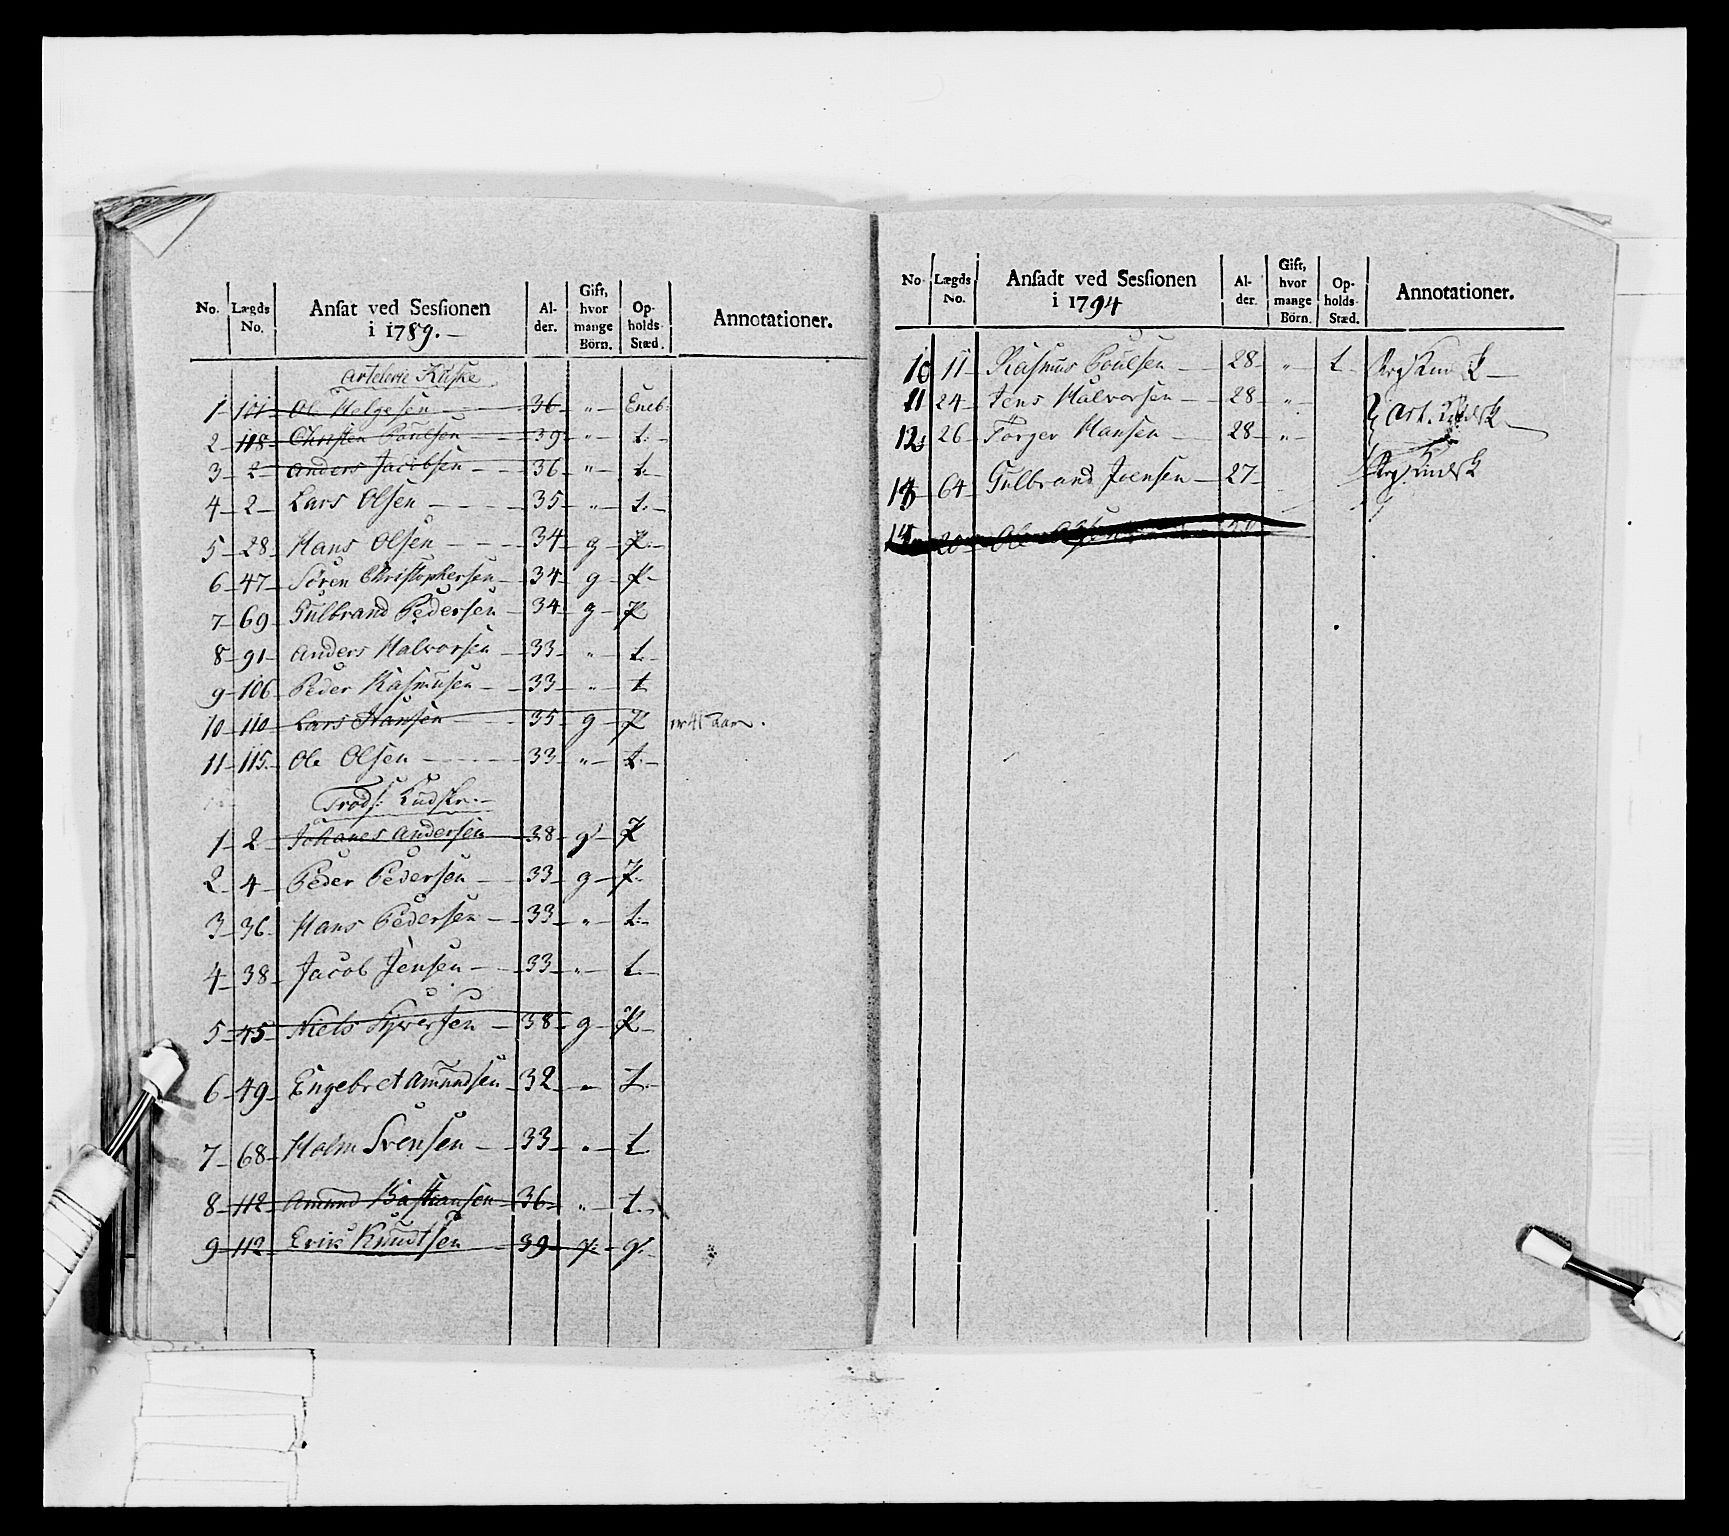 No. Lægds No. Ansat ved Sessionen i 1789. Alder. Gift, hvor mange Börn. Opholds Stæd. Annotationer.
Artelerie Kuske
1 101 Ole Helgesen 36 " Eneb
2 118 Christen Poulsen 39 " L.
3 2 Anders Jacobsen 36 " L.
4 2 Lars Olsen 35 " L.
5 28 Hans Olsen 34 g P.
6 47 Sören Christophersen 34 g P
7 69 Gulbrand Pedersen 34 g P
8 91 Anders Halvorsen 33 " L.
9 106 Peder Rasmusen 33 " L
10 110 Lars Hansen 35 g P er 41 Aar.
11 115. Ole Olsen 33 " L.
1 2 Johanes Andersen 38 g P
2 4 Peder Pedersen 33 g P.
3 36 Hans Pedersen 33 " L.
4 38 Jacob Jensen 33 " L.
5 45 Niels Syversen 38 g P
6 49 Engebret Amundsen 32 " L.
7 68 Holm Svensen 33 " L
8 112 Amund Bastiansen 36 " L.
9 112 Erik Knudtsen 39
No. Lægds No. Ansadt ved Sessionen i 1794 Alder. Gift, hvor mange Börn. Opholds Stæd. Annotationer.
10 11 Rasmus Poulsen 28 " L
11 24 Jens Halvorsen 28 " Art.
12 26 Törger Hansen 28 "
13 64 Gulbrand Joensen 27
14 20 Ole